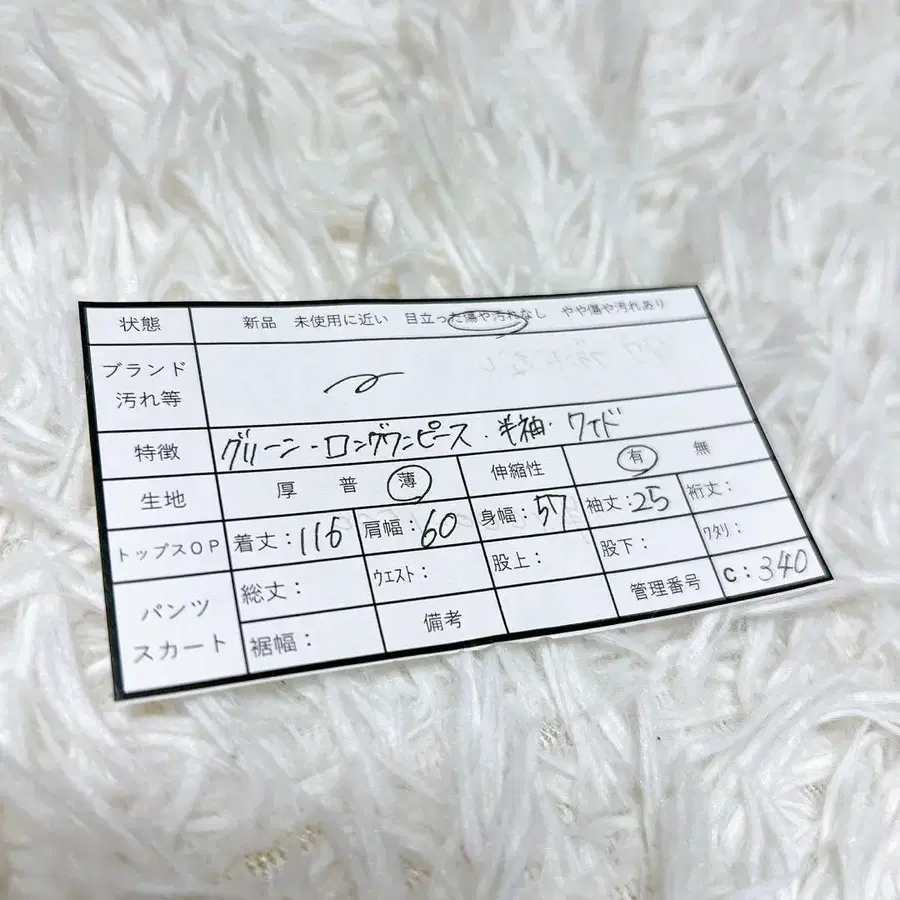 状態 新品 未使用に近い 目立った傷や汚れなし やや傷や汚れあり
ブランド
汚れ等
特徴 グリーン・ロングワンピース・半袖・ワイド
生地 厚 普 薄 伸縮性 有 無
トップスOP 着丈：116 肩幅：60 身幅：57 袖丈：25 裄丈：
パンツ
スカート
総丈： ウエスト： 股上： 股下： ワタリ：
裾幅： 備考 管理番号 C：340